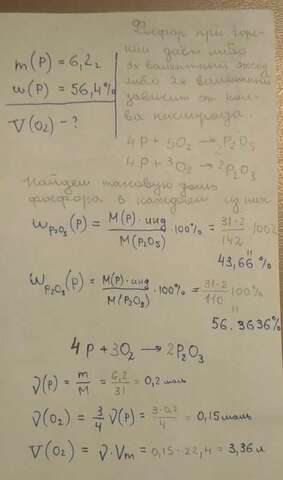 m(P) = 6,2г
w(P) = 56,4%
V(O₂) - ?
Фосфор при горе-
нии дает либо
5х валентный оксид
либо 3х валентный
зависит от кол-
ва кислорода
4P + 5O₂ → 2P₂O₅
4P + 3O₂ → 2P₂O₃
Найдем массовую долю
фосфора в каждом из них
W P₂O₅ (P) = M(P)·инд / M(P₂O₅) · 100% = 31·2 / 142 100%
43,66%
W P₂O₃ (P) = M(P)·инд / M(P₂O₃) · 100% = 31·2 / 110 100%
56.3636%
4P + 3O₂ → 2P₂O₃
ν(P) = m / M = 6,2 / 31 = 0,2 моль
ν(O₂) = 3/4 ν(P) = 3·0,2 / 4 = 0,15 моль
V(O₂) = ν·Vm = 0,15·22,4 = 3,36 л